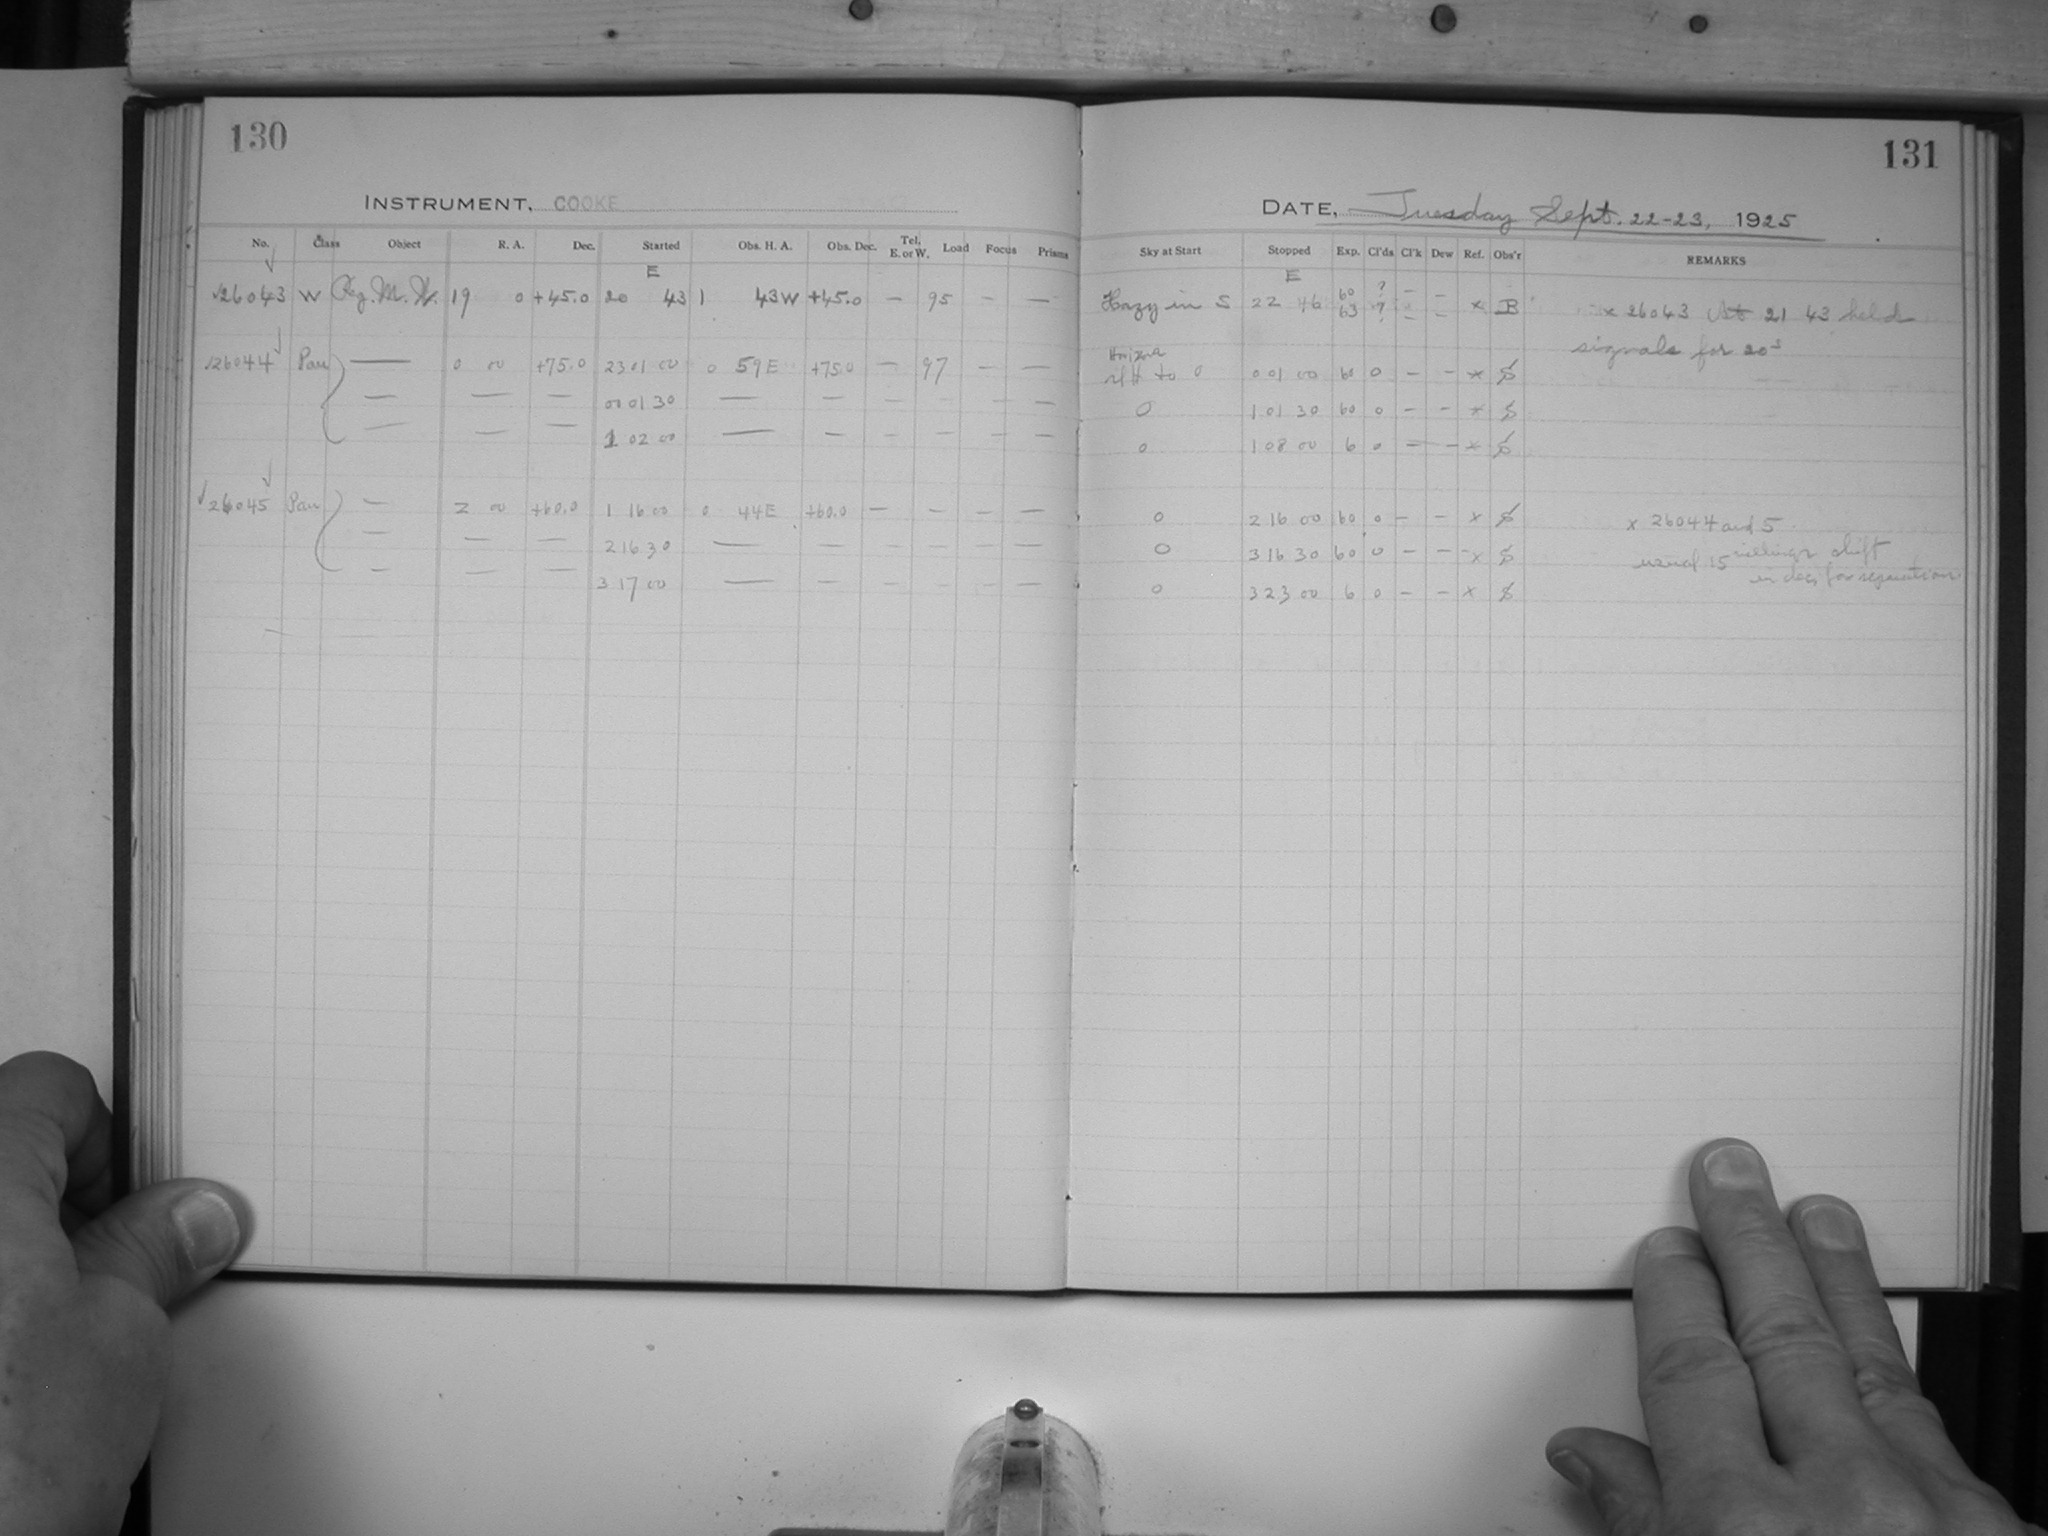 130
131
INSTRUMENT, COOKE
DATE, Tuesday Sept. 22-23, 1925
No. Class Object R. A. Dec. Started Obs. H. A. Obs. Dec. Tel. E. or W. Load Focus Prisms
Sky at Start Stopped Exp. Cl'ds Cl'k Dew Ref. Obs'r REMARKS
E
E
√26043 W Reg. M. W. 19 0 +45.0 20 43 1 43W +45.0 — 95 — —
Hazy in S 22 46 60 ? — —
63 ? — — x B x 26043 At 21 43 held
signals for 20s
√26044 Pan — 0 00 +75.0 23 01 00 0 59E +75.0 — 97 — —
Horizon
to 0 0 01 00 60 0 — — x S
— — — 00 01 30 — — — — — —
0 1 01 30 60 0 — — x S
— — — 1 02 00 — — — — — —
0 1 08 00 6 0 — — x S
√26045 Pan — 2 00 +60.0 1 16 00 0 44E +60.0 — — — —
0 2 16 00 60 0 — — x S x 26044 and 5
— — — 2 16 30 — — — — — —
0 3 16 30 60 0 — — x S usual 15 shift
in dec, for separation
— — — 3 17 00 — — — — — —
0 3 23 00 6 0 — — x S